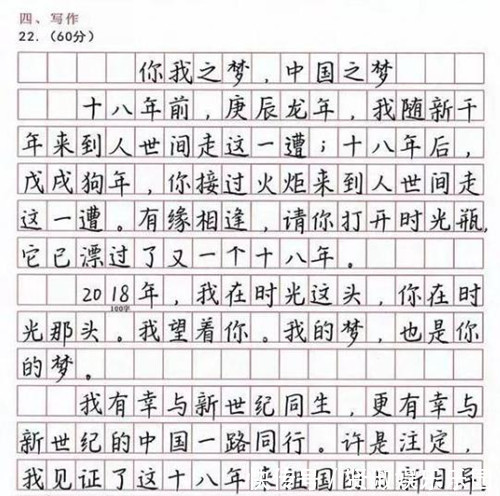 四、写作
22.(60分)
你我之梦，中国之梦
十八年前，庚辰龙年，我随新千
年来到人世间走这一遭；十八年后，
戊戌狗年，你接过火炬来到人世间走
这一遭。有缘相逢，请你打开时光瓶，
它已漂过了又一个十八年。
2018年，我在时光这头，你在时
100字
光那头。我望着你。我的梦，也是你
的梦。
我有幸与新世纪同生，更有幸与
新世纪的中国一路同行。许是注定，
我见证了这十八年，祖国